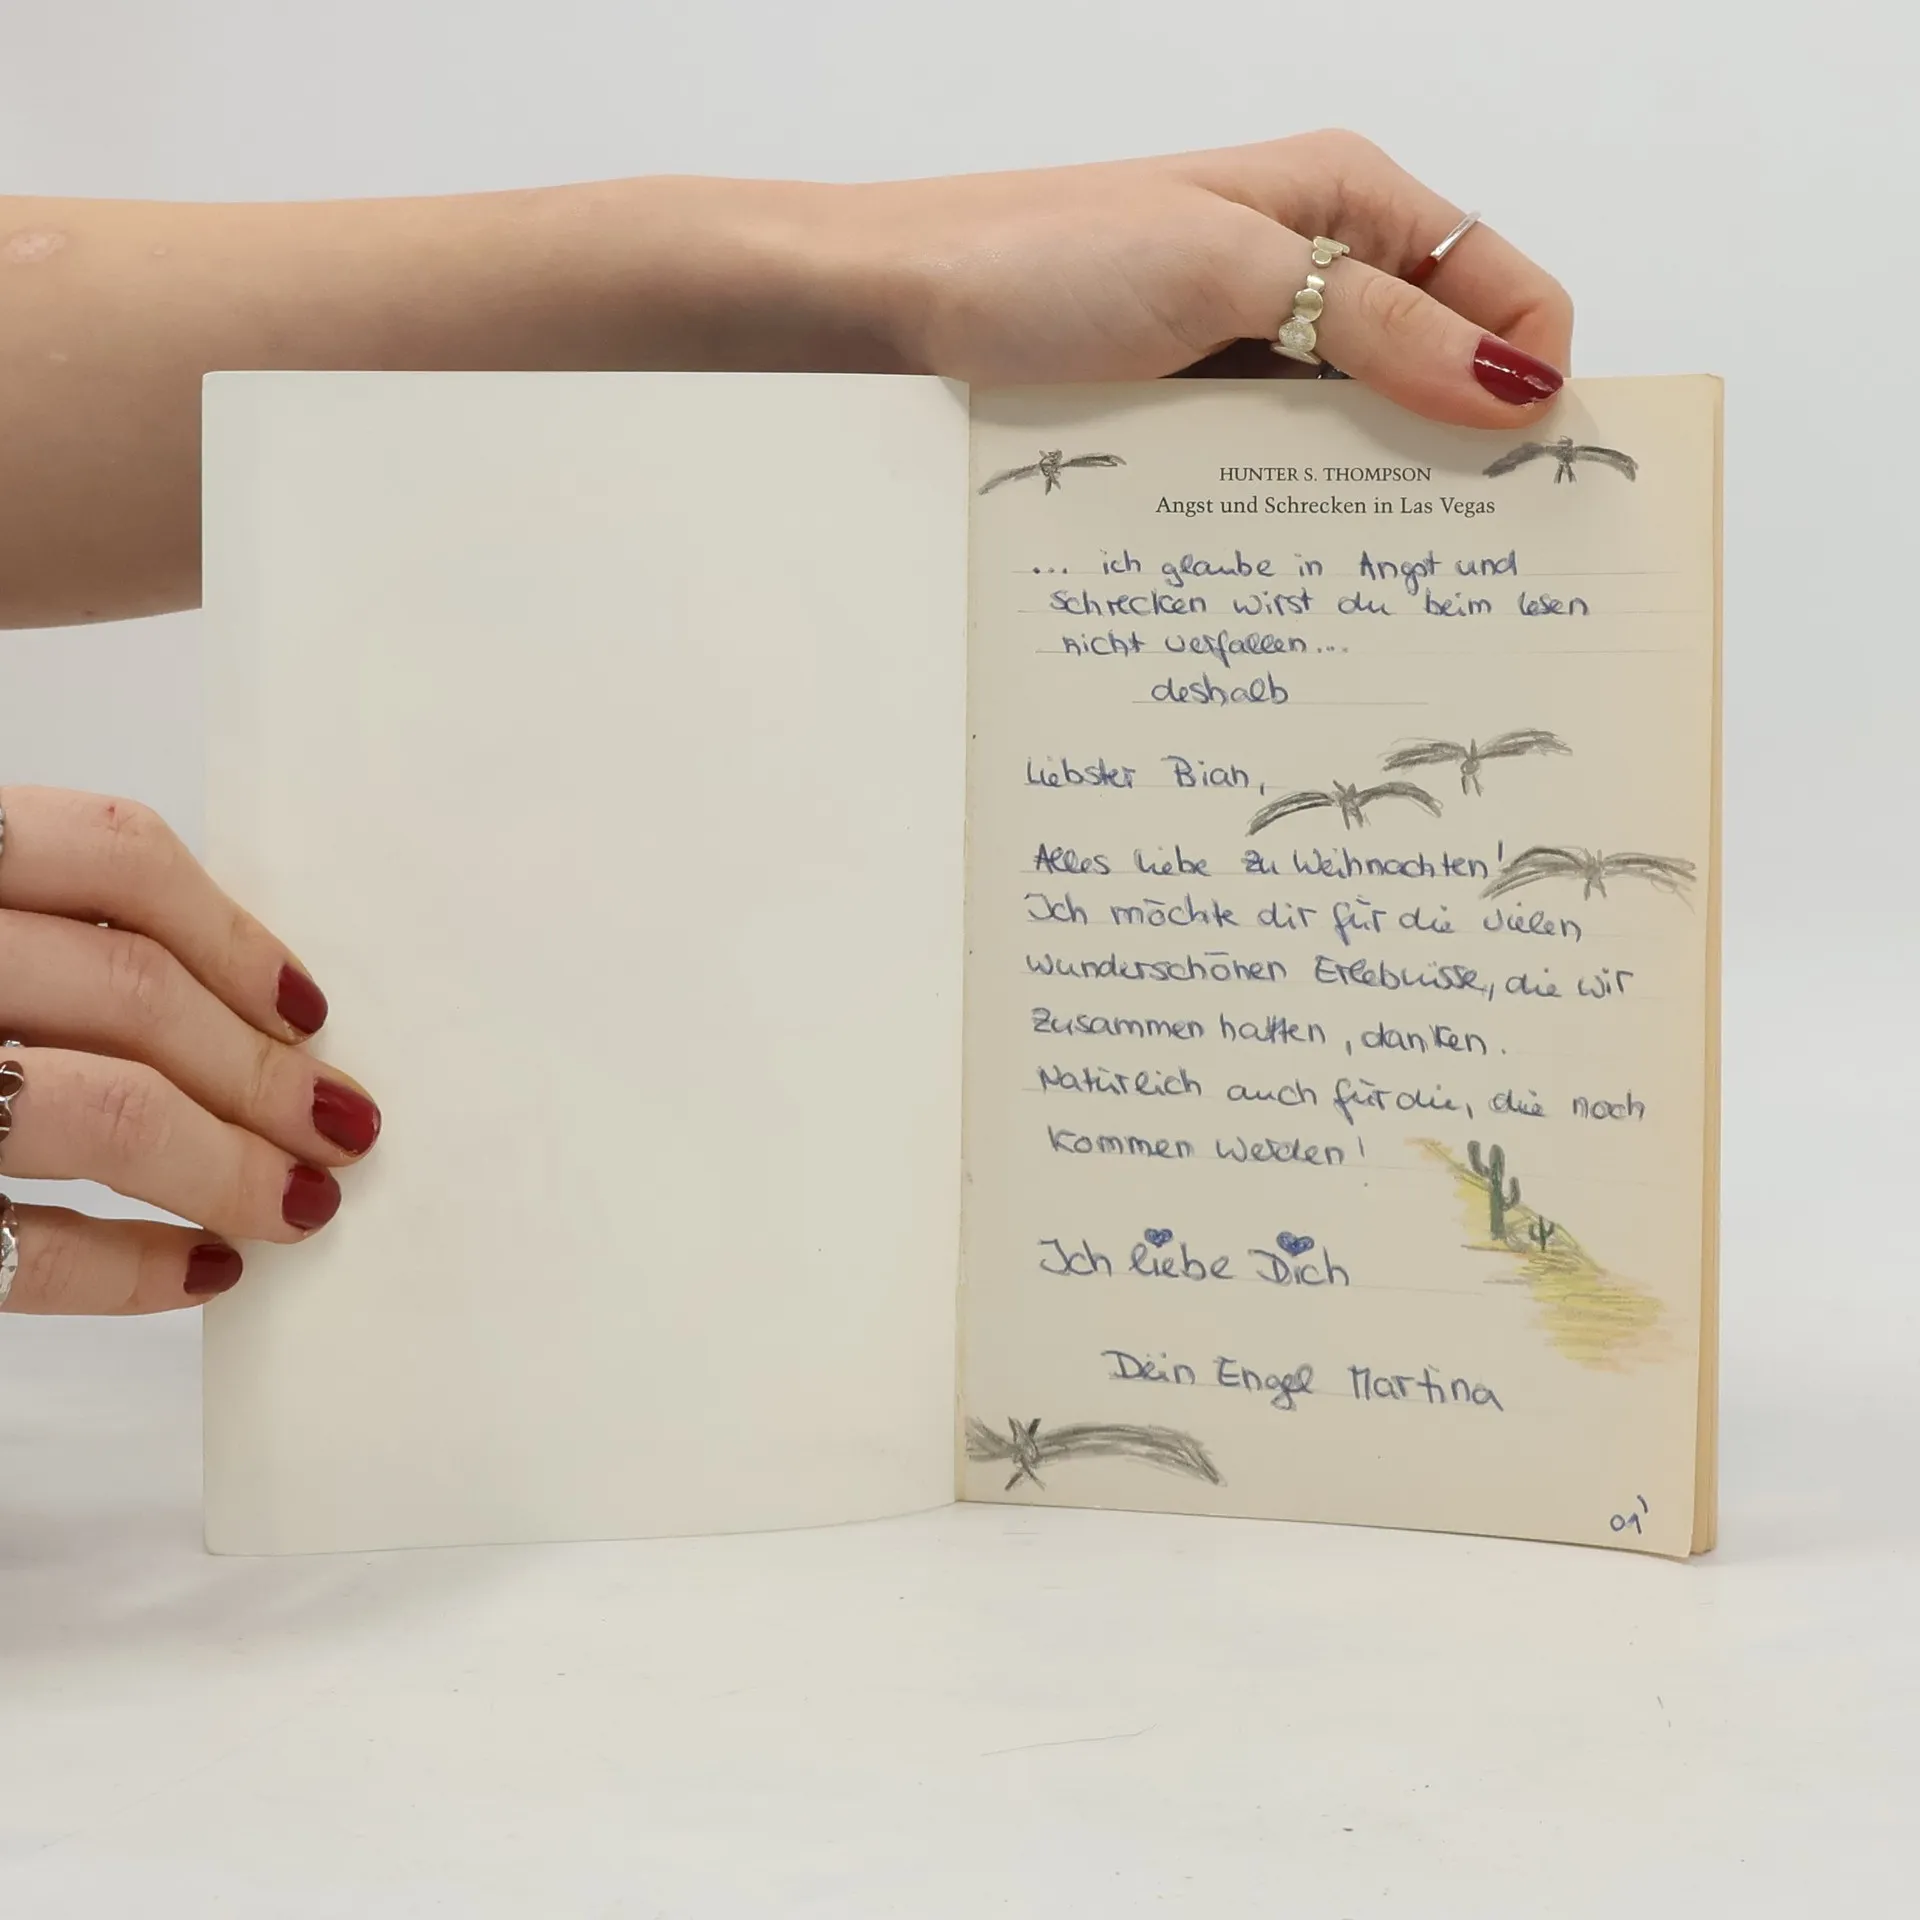 HUNTER S. THOMPSON
Angst und Schrecken in Las Vegas
... ich glaube in Angst und
Schrecken wirst du beim lesen
nicht verfallen...
deshalb
Liebster Bian,
Alles Liebe zu Weihnachten!
Ich möchte dir für die vielen
wunderschönen Erlebnisse, die wir
zusammen hatten, danken.
Natürlich auch für die, die noch
kommen werden!
Ich liebe Dich
Dein Engel Martina
01'